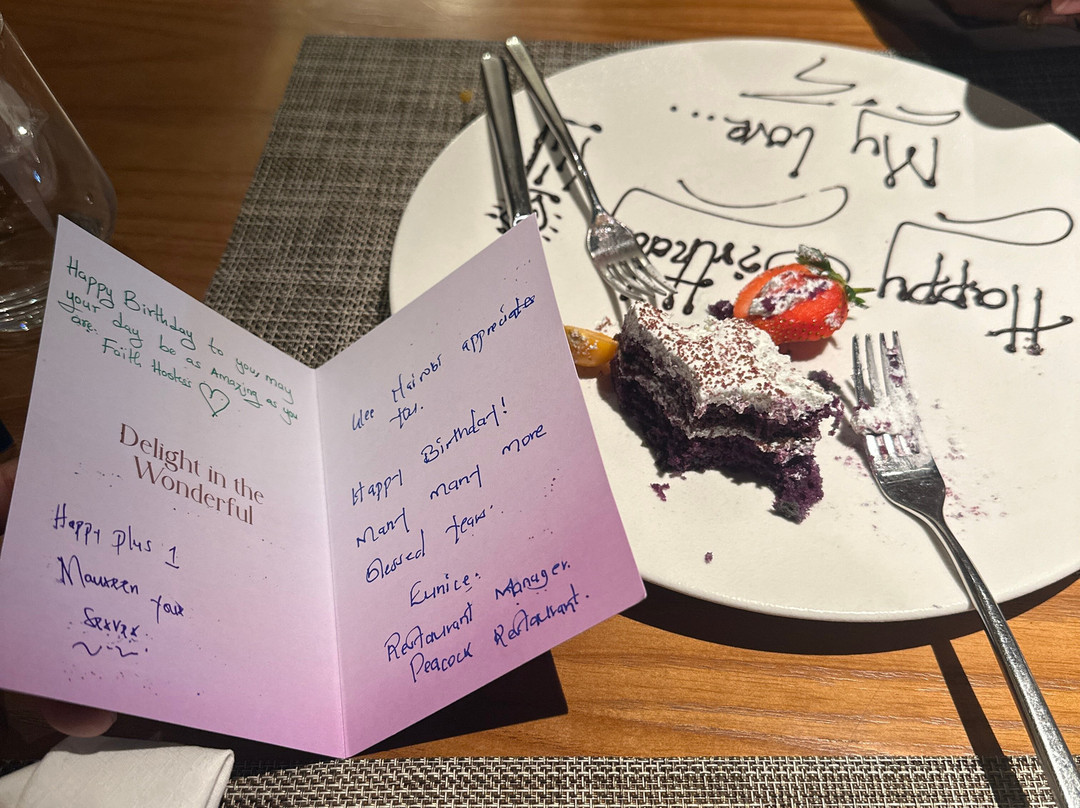 Happy Birthday to you, may
your day be as Amazing as you
are.
Faith Hostess
Delight in the
Wonderful
Happy Plus 1
Maureen your
Server
Wee Nairobi appreciates
you.
Happy Birthday!
Many many more
Blessed years.
Eunice.
Restaurant Manager.
Peacock Restaurant.
Happy Birthday
My Love...